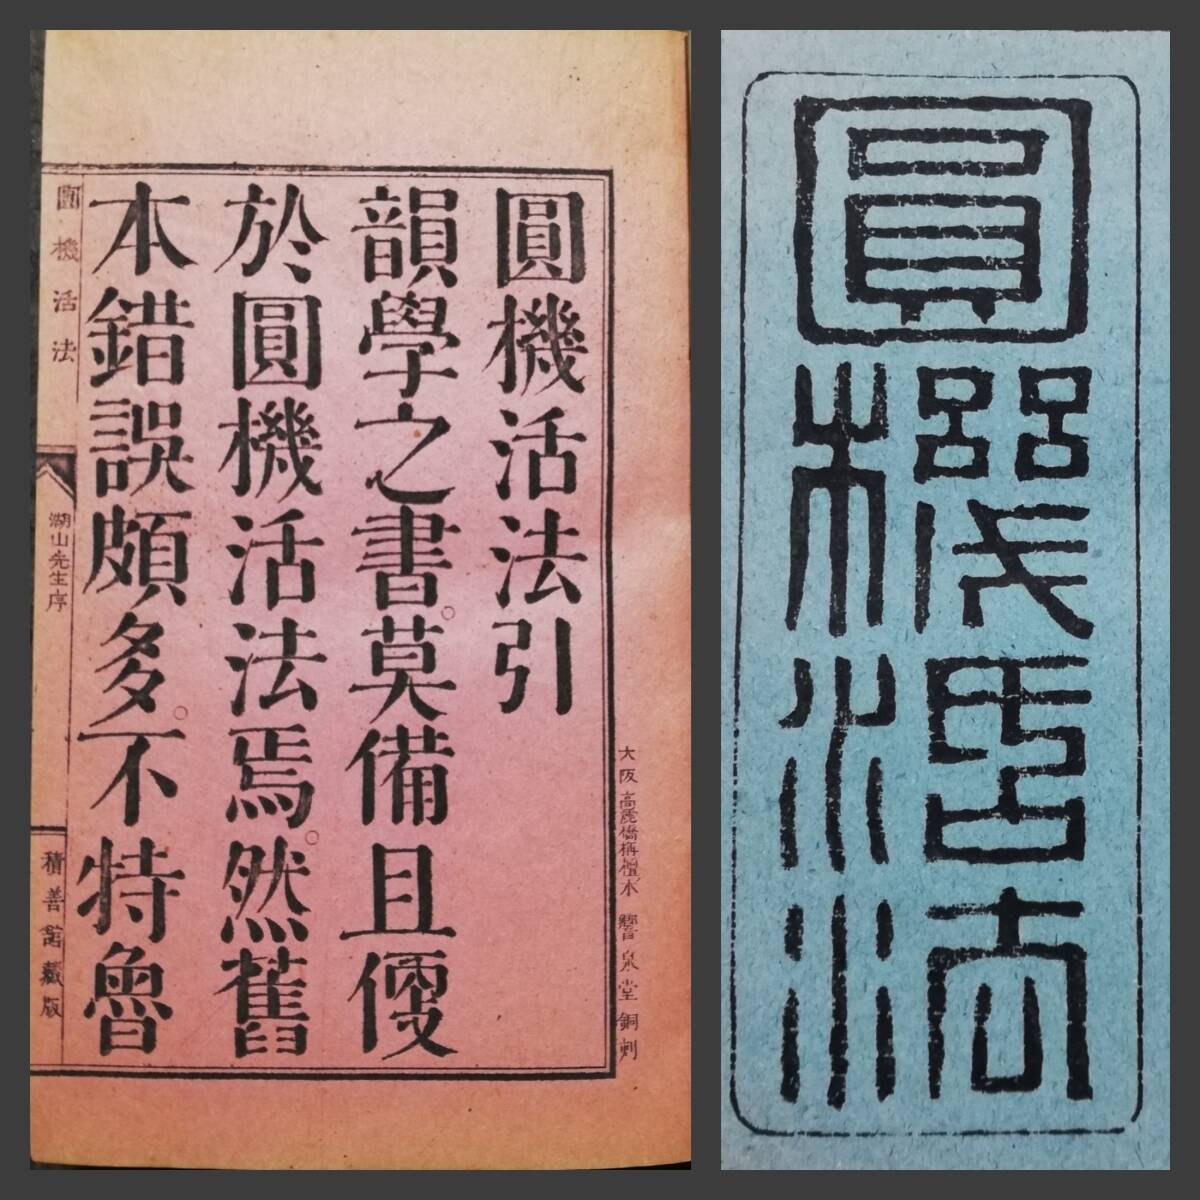 圓機活法引
韻學之書。莫備且便
於圓機活法焉。然舊
本錯誤頗多。不特魯
圓機活法
湖山先生序
積善舘藏版
大阪高麗橋栴檀木 響泉堂銅刻
圓機活法